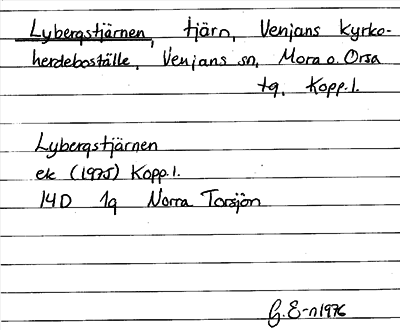 Lybergstjärnen, tjärn, Venjans kyrko-
herdeboställe, Venjans sn, Mora o. Orsa
tg, Kopp. l.
Lybergstjärnen
ek (1975) Kopp. l.
14D 1g Norra Torsjön
G. E-n 1976